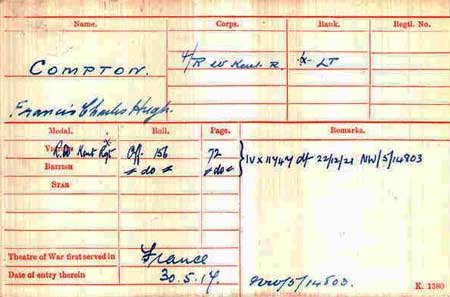 Name. Corps. Rank. Regtl. No.
COMPTON. 4/R W Kent. R. x LT
Francis Charles Hugh.
Medal. Roll. Page. Remarks.
Victory R.W Kent Rgt x Off. 156 72 IV x 11747 df 22/12/21 NW/5/14803
British " do " " do "
Star
Theatre of War first served in France
Date of entry therein 30.5.17. NW/5/14803. K. 1380